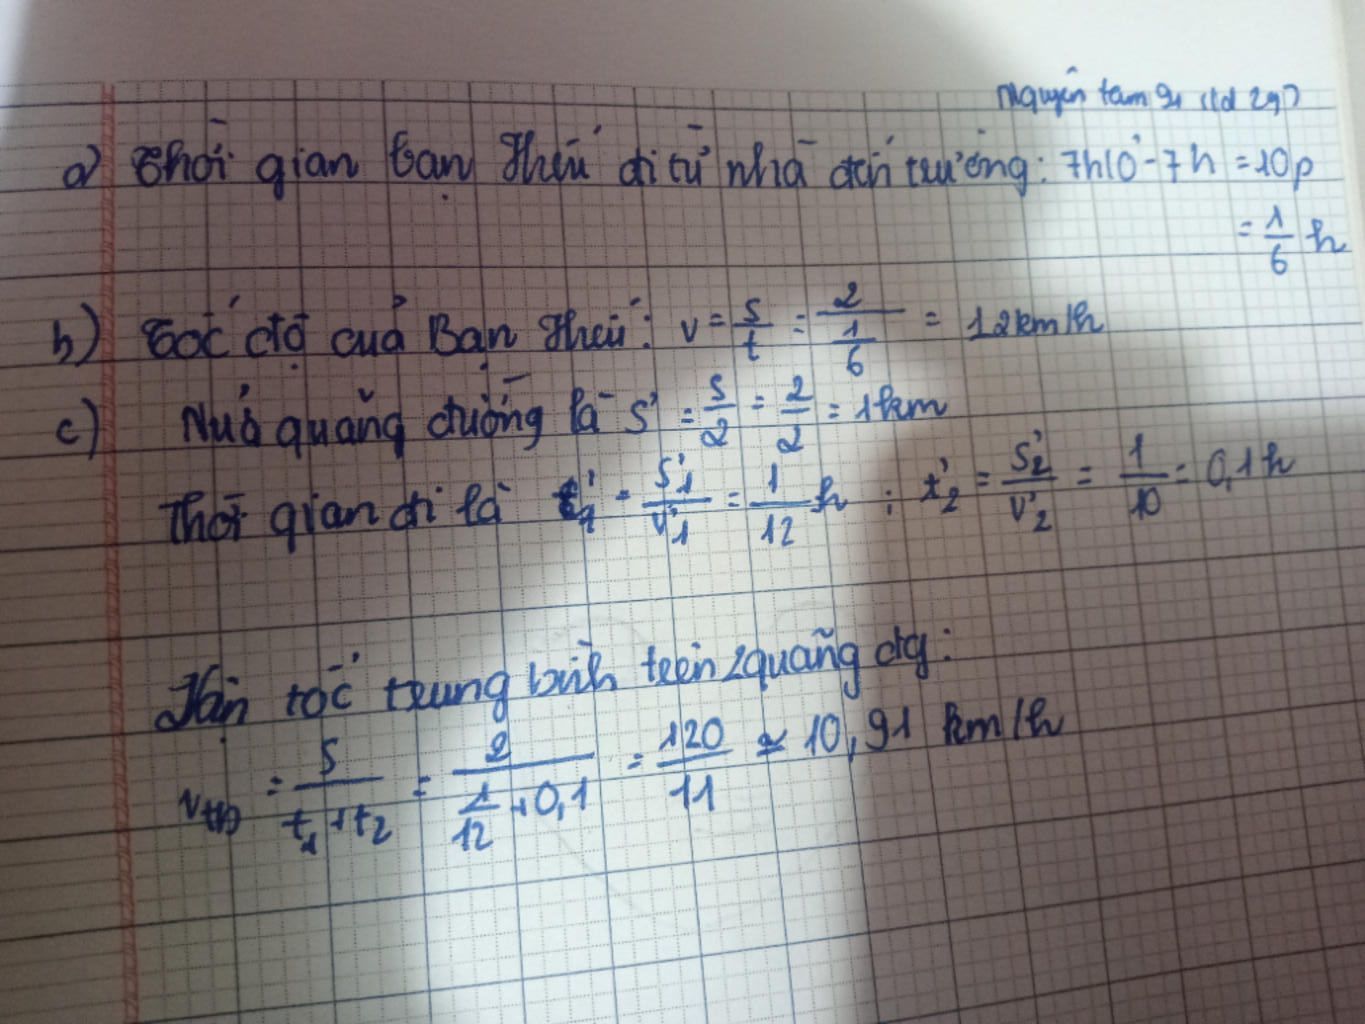 Nguyên tam 91 (td 29)
a) Thời gian bạn Thểu đi từ nhà đến trường: 7h10' - 7h = 10p
= 1/6 h
b) Tốc độ của Bạn Thểu: v = s/t = 2/(1/6) = 12km/h
c) Nửa quãng đường là s' = s/2 = 2/2 = 1km
Thời gian đi là t'1 = s'1/v'1 = 1/12 h ; t'2 = s'2/v'2 = 1/10 = 0,1h
Vận tốc trung bình trên 2 quãng đg:
vtb = s/(t1+t2) = 2/(1/12+0,1) = 120/11 ≃ 10,91 km/h